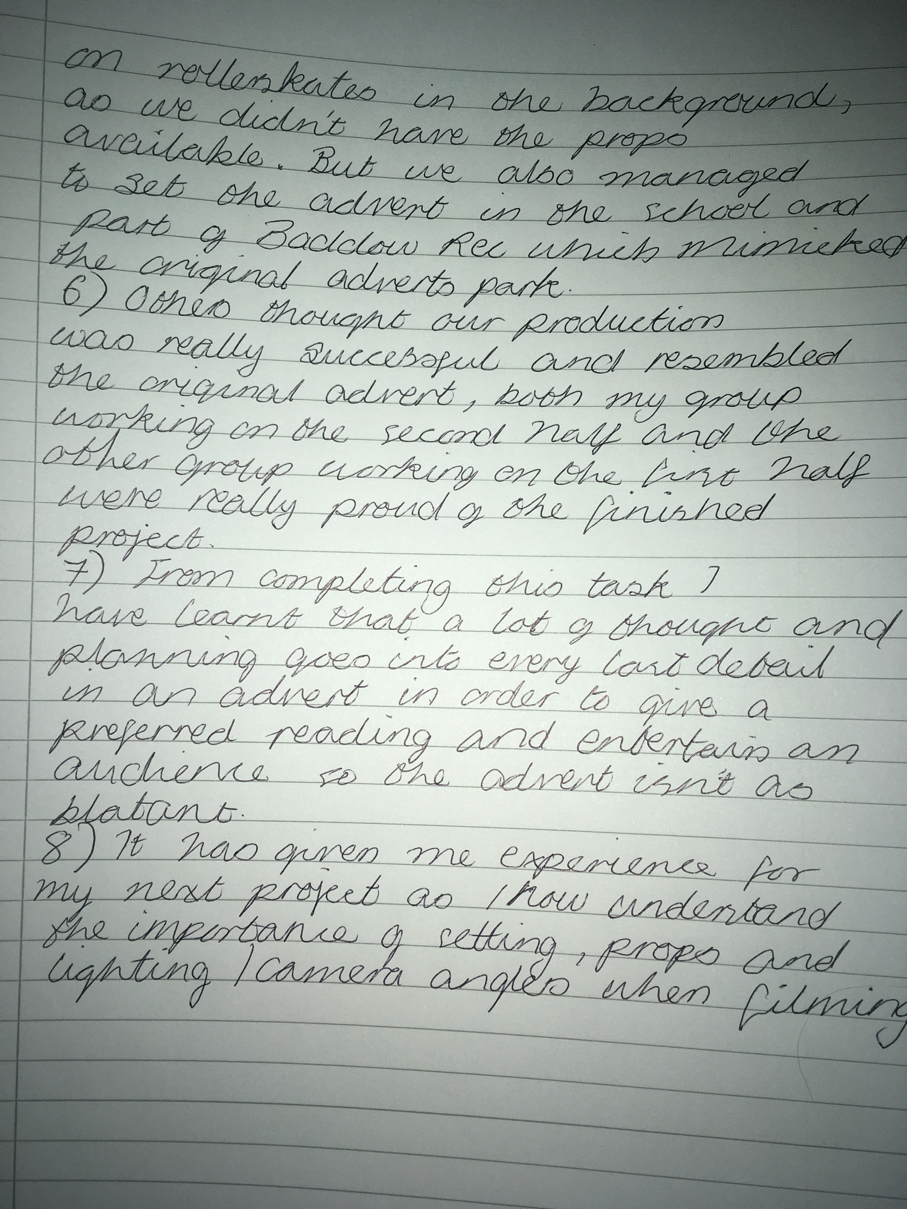 on rollerskates in the background,
as we didn't have the props
available. But we also managed
to set the advert in the school and
part of Baddow Rec which mimicked
the original adverts park.
6) Others thought our production
was really successful and resembled
the original advert, both my group
working on the second half and the
other group working on the first half
were really proud of the finished
project.
7) From completing this task I
have learnt that a lot of thought and
planning goes into every last detail
in an advert in order to give a
preferred reading and entertain an
audience so the advert isn't as
blatant.
8) It has given me experience for
my next project as I now understand
the importance of setting, props and
lighting / camera angles when filming